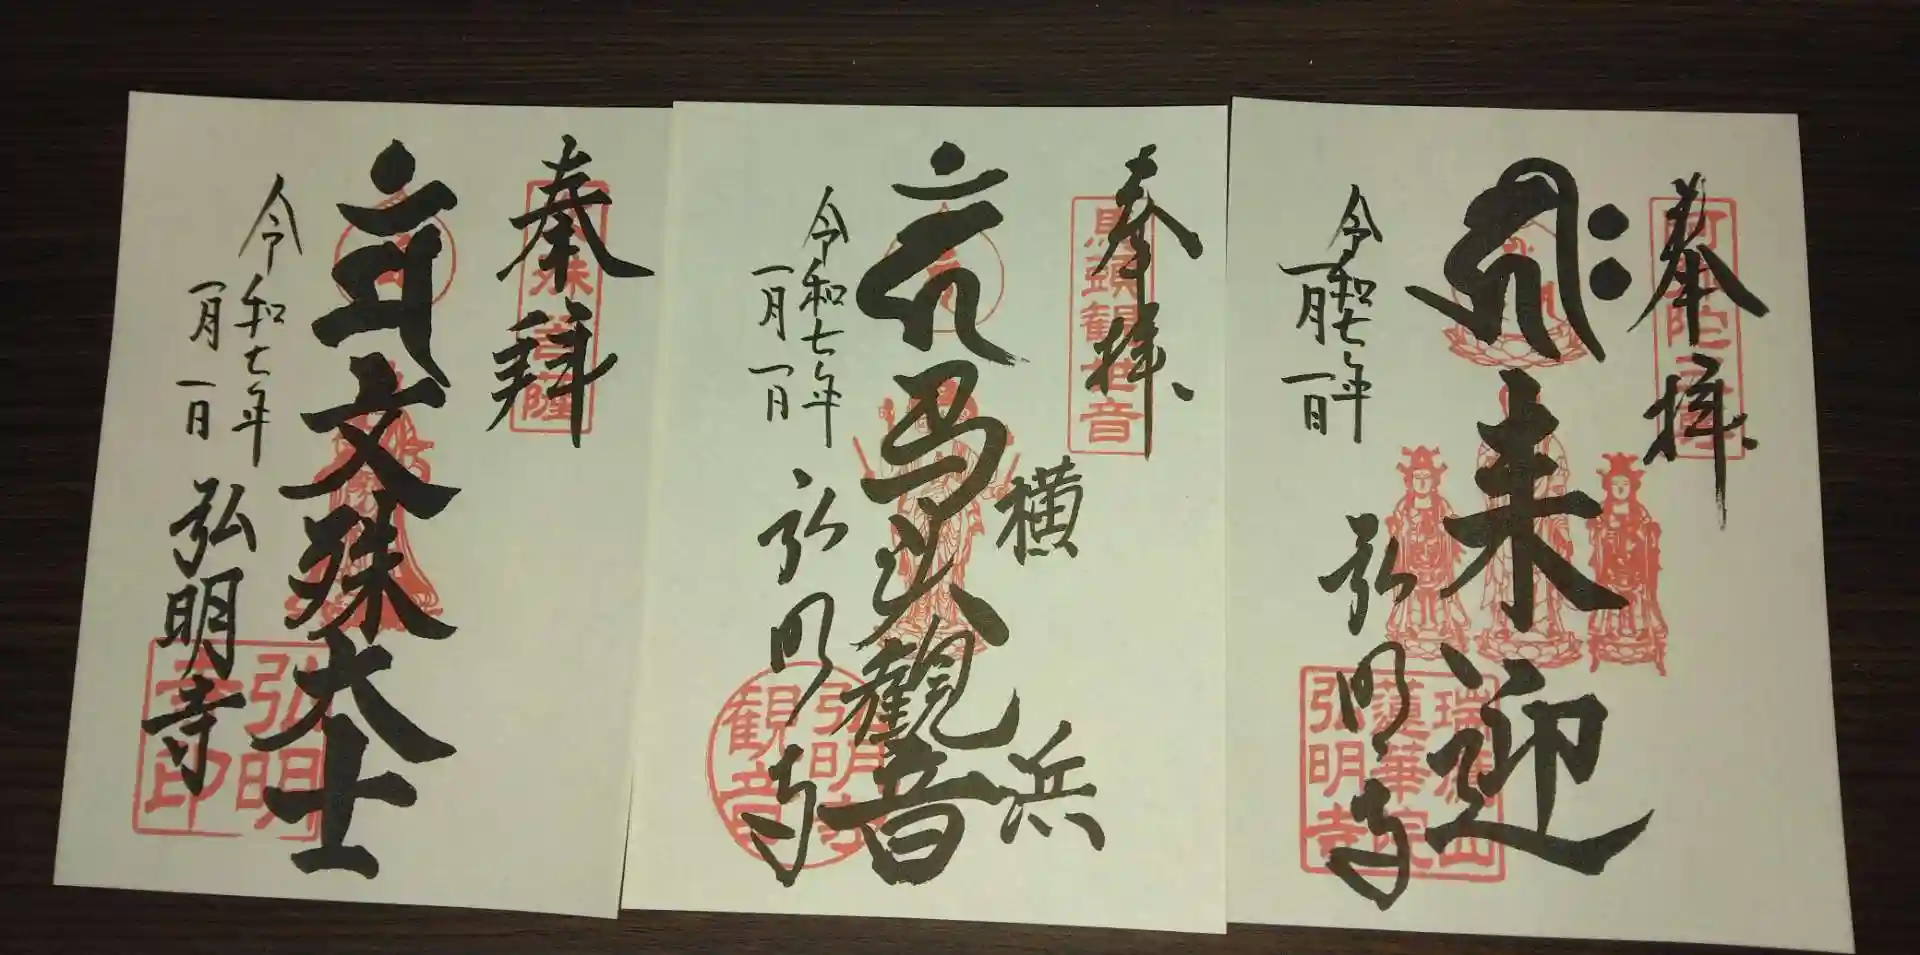 奉拝
文殊大士
令和七年
一月一日
弘明寺
弘明
寺印
奉拝
馬頭観世音
横浜
馬头觀音
令和七年
一月一日
弘明寺
弘明寺
観音
奉拝
来迎
令和七年
一月一日
弘明寺
蓮華院
弘明寺